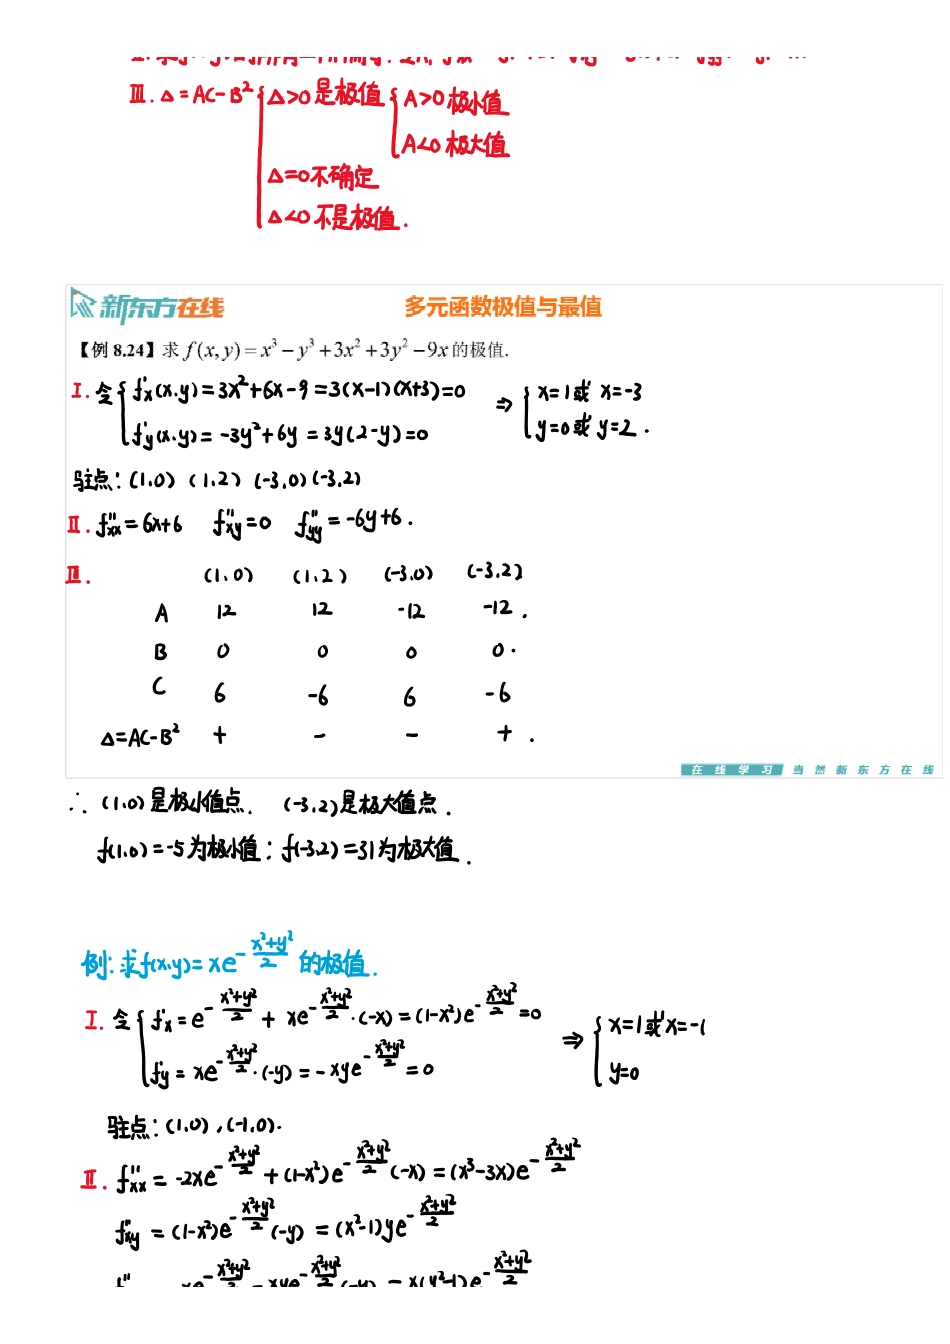 Ⅲ. Δ=AC-B² { Δ>0 是极值 { A>0 极小值
A<0 极大值
Δ=0 不确定
Δ<0 不是极值.
新东方在线 多元函数极值与最值
【例 8.24】求 f(x,y)=x³-y³+3x²+3y²-9x 的极值.
Ⅰ. 令 { f'x(x.y)=3x²+6x-9=3(x-1)(x+3)=0 ⇒ { x=1或 x=-3
f'y(x.y)=-3y²+6y=3y(2-y)=0 y=0或 y=2.
驻点: (1.0) (1.2) (-3.0) (-3.2)
Ⅱ. f''xx=6x+6 f''xy=0 f''yy=-6y+6.
Ⅲ. (1.0) (1.2) (-3.0) (-3.2)
A 12 12 -12 -12.
B 0 0 0 0.
C 6 -6 6 -6
Δ=AC-B² + - - +.
在线学习 当然新东方在线
∴ (1.0)是极小值点. (-3.2)是极大值点.
f(1.0)=-5为极小值; f(-3.2)=31为极大值.
例: 求f(x.y)=xe^{-\frac{x²+y²}{2}} 的极值.
Ⅰ. 令 { f'x=e^{-\frac{x²+y²}{2}}+xe^{-\frac{x²+y²}{2}}·(-x)=(1-x²)e^{-\frac{x²+y²}{2}}=0 ⇒ { x=1或x=-1
f'y=xe^{-\frac{x²+y²}{2}}·(-y)=-xye^{-\frac{x²+y²}{2}}=0 y=0
驻点: (1.0), (-1.0).
Ⅱ. f''xx=-2xe^{-\frac{x²+y²}{2}}+(1-x²)e^{-\frac{x²+y²}{2}}(-x)=(x³-3x)e^{-\frac{x²+y²}{2}}
f''xy=(1-x²)e^{-\frac{x²+y²}{2}}(-y)=(x²-1)ye^{-\frac{x²+y²}{2}}